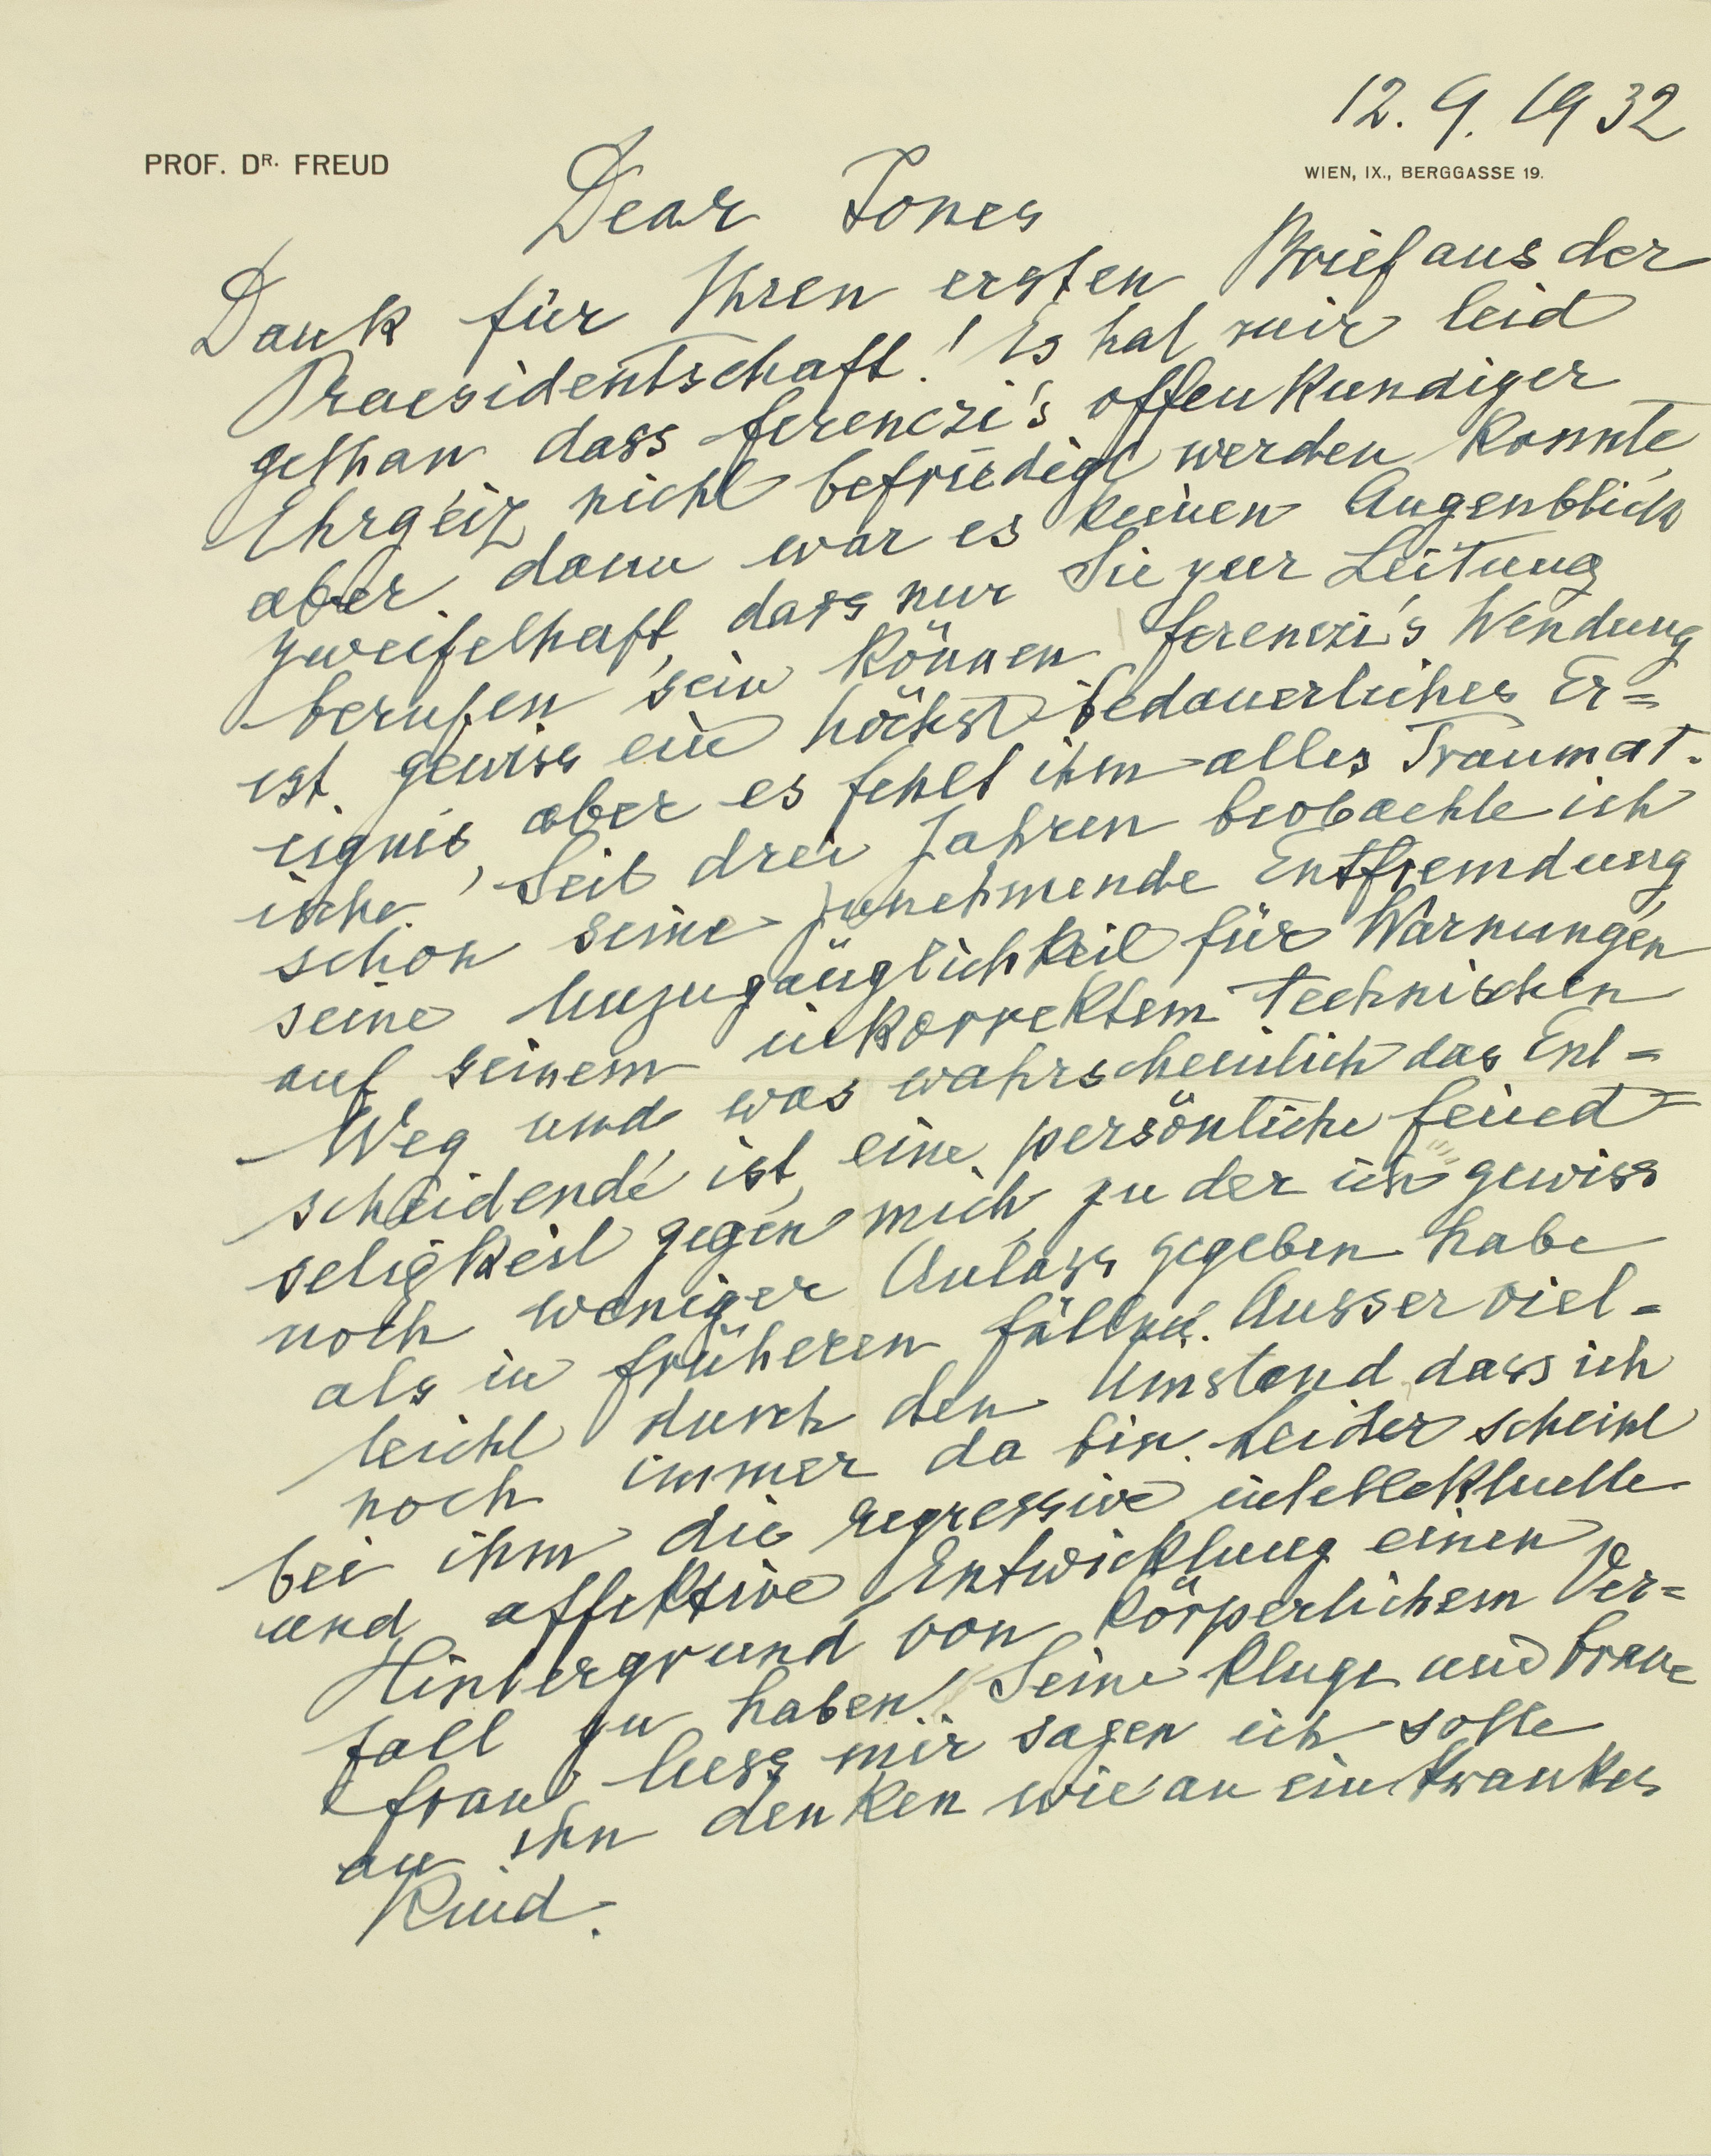 12. 9. 1932
PROF. DR. FREUD
WIEN, IX., BERGGASSE 19.
Dear Jones
Dank für Ihren ersten Brief aus der
Praesidentschaft! Es hat mir leid
gethan dass Ferenczi's offenkundiger
Ehrgeiz nicht befriedigt werden konnte,
aber dann war es keinen Augenblick
zweifelhaft, dass nur Sie zur Leitung
berufen sein können. Ferenczi's Wendung
ist gewiss ein höchst bedauerliches Er=
eignis, aber es fehlt ihm alles Traumat-
ische. Seit drei Jahren beobachte ich
schon seine zunehmende Entfremdung,
seine Unzugänglichkeit für Warnungen
auf seinem inkorrektem technischen
Weg und, was wahrscheinlich das Ent=
scheidende ist, eine persönliche Feind=
seligkeit gegen mich, zu der ich gewiss
noch weniger Anlass gegeben habe
als in früheren Fällen. Ausser viel=
leicht durch den Umstand, dass ich
noch immer da bin. Leider scheint
bei ihm die regressive intellektuelle
und affektive Entwicklung einen
Hintergrund von körperlichem Ver=
fall zu haben. Seine kluge und brave
Frau liess mir sagen ich solle
an ihn denken wie an ein krankes
Kind.